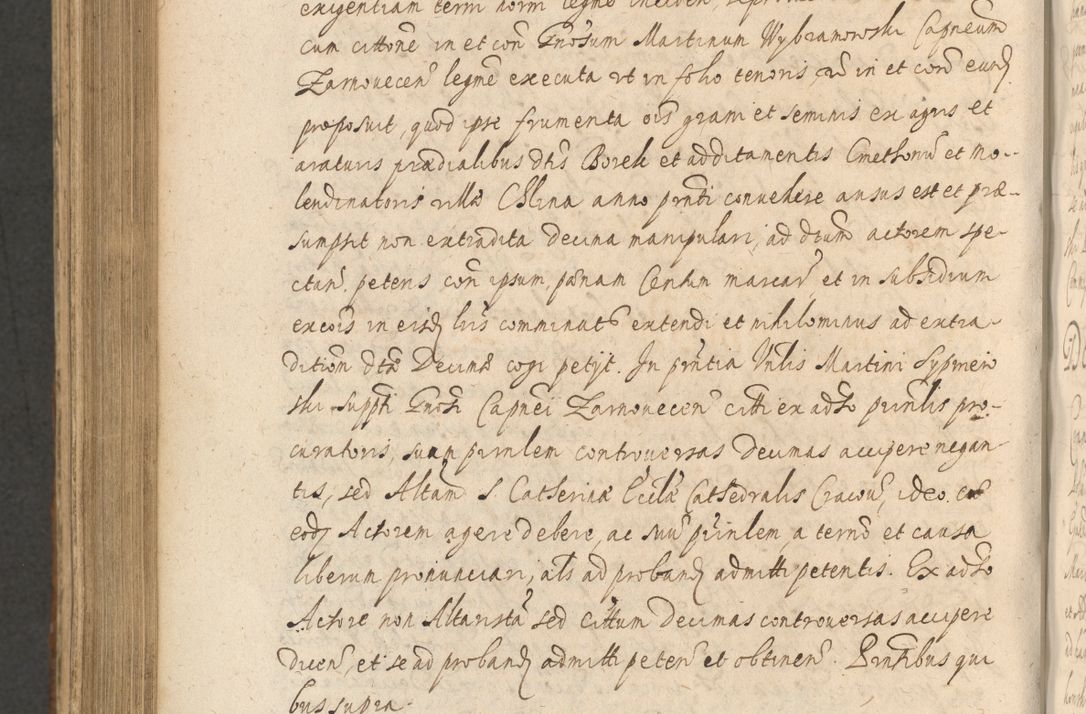 exigentiam term norm legme
cum cittone in et con Gnosum Martinum Wybramowski Capneum
Zarnovecen legme executa ut in folio tenoris, in et con eund
proposuit, quod ipse frumenta ois grani et seminis ex agris et
araturis prædialibus dtis Borek et additamentis Cmethonu et mo-
lendinatoris villæ Chlina anno pnti convehere ausus est et præ-
sumpsit non extradita decima manipulari, ad dtum actorem spe-
ctan. petens con ipsum, pænam Centum marcar et in subsidium
excois in eisd lris comminat extendi et nihilominus ad extra-
dition dtæ Decimæ cogi petijt. In pntia Vnlis Martini Sypniew
ski suppti Gnosi Capnei Zarnovecen citti ex adso prinlis pro-
curatoris, suum prinlem controversas decimas accipere negan-
tis, sed Altam S. Catherinæ Eccliæ Cathedralis Cracou, ideo
eod Actorem agere debere, ac suu prinlem a termo et causa
liberum pronunciari, als ad proband admitti petentis. Ex adso
Actore non Altarista sed Cittum decimas controversas accipere
dicen et se ad proband admitti peten et obtinen. Pntibus qui
bus supra.